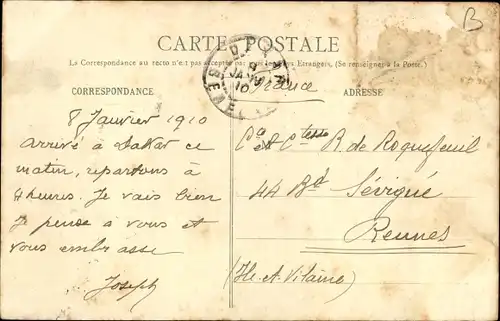 B
CARTE POSTALE
La Correspondance au recto n'est pas acceptée par tous les pays Etrangers, (Se renseigner à la Poste.)
CORRESPONDANCE
ADRESSE
France
8 Janvier 1910
arrivé à Dakar ce
matin, repartons à
4 heures. Je vais bien
je pense à vous et
vous embrasse
Joseph
Cte et Ctesse R. de Roquefeuil
44 Bd Sévigné
Rennes
(Ile-et-Vilaine)